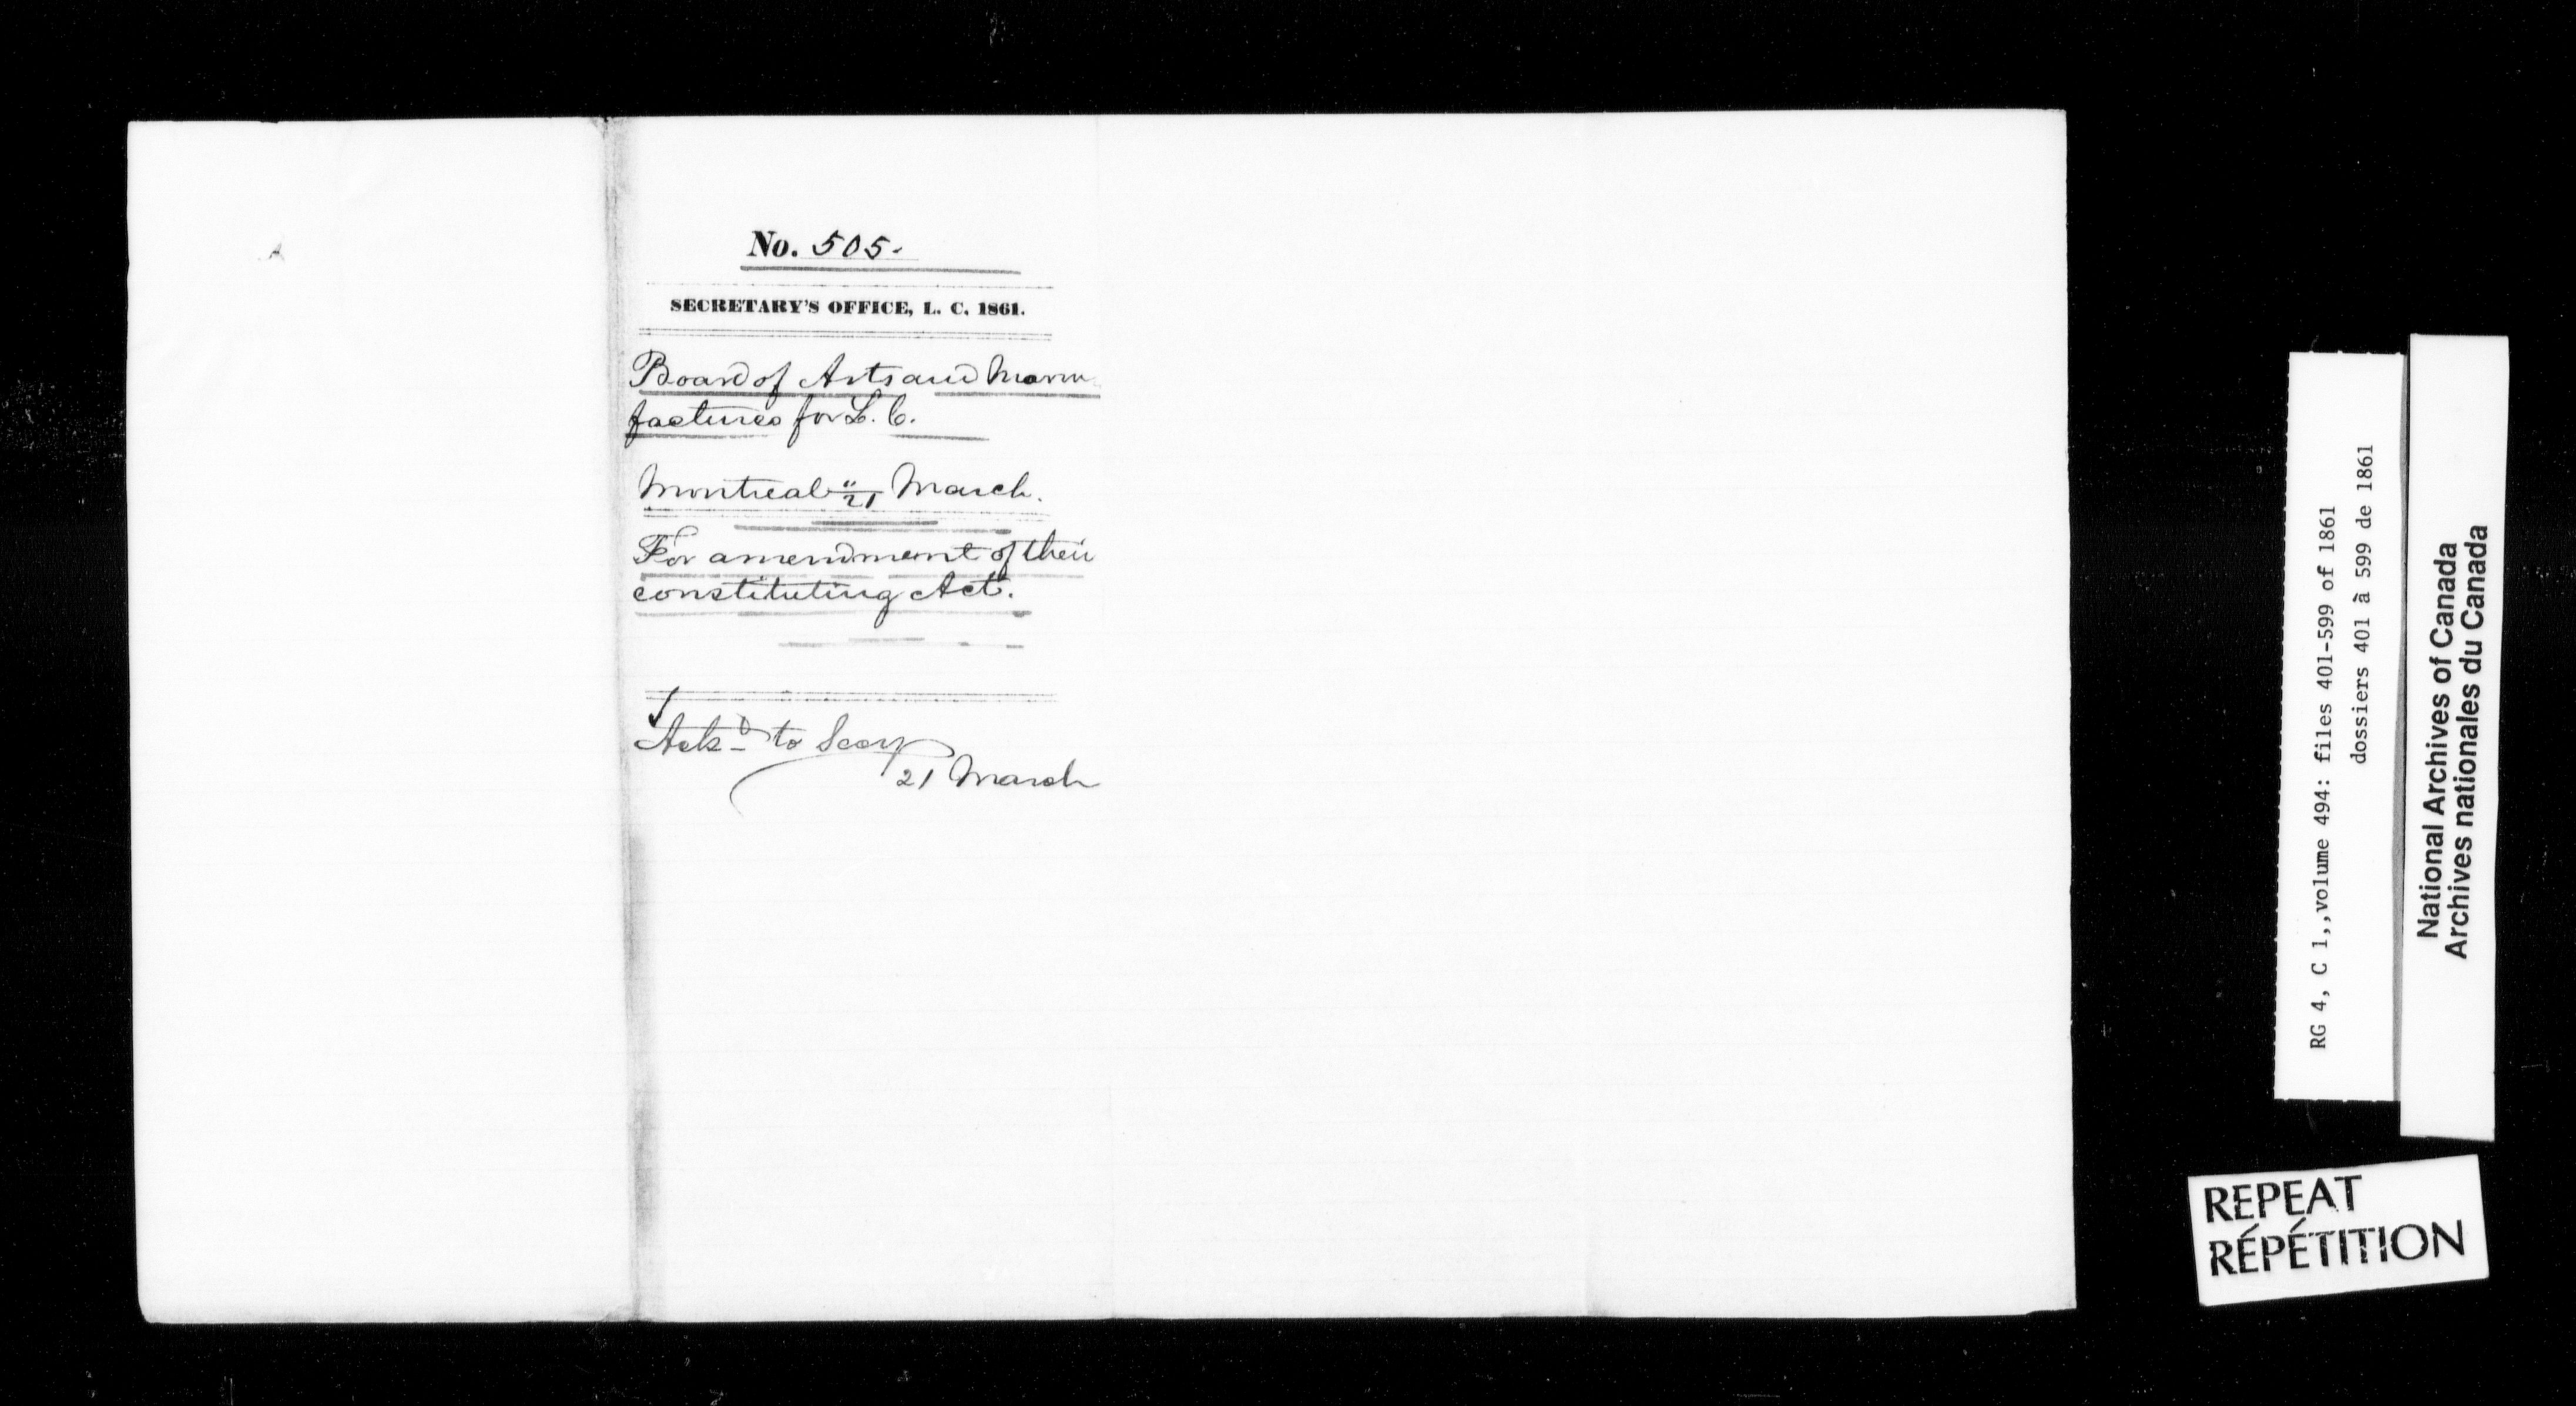 No. 505.
SECRETARY'S OFFICE, L. C. 1861.
Board of Arts and Manu-
factures for L. C.
Montreal " 21 March.
For amendment of their
constituting Act.
Ackd to Secy
21 March
RG 4, C 1,,volume 494: files 401-599 of 1861
dossiers 401 à 599 de 1861
National Archives of Canada
Archives nationales du Canada
REPEAT
RÉPÉTITION